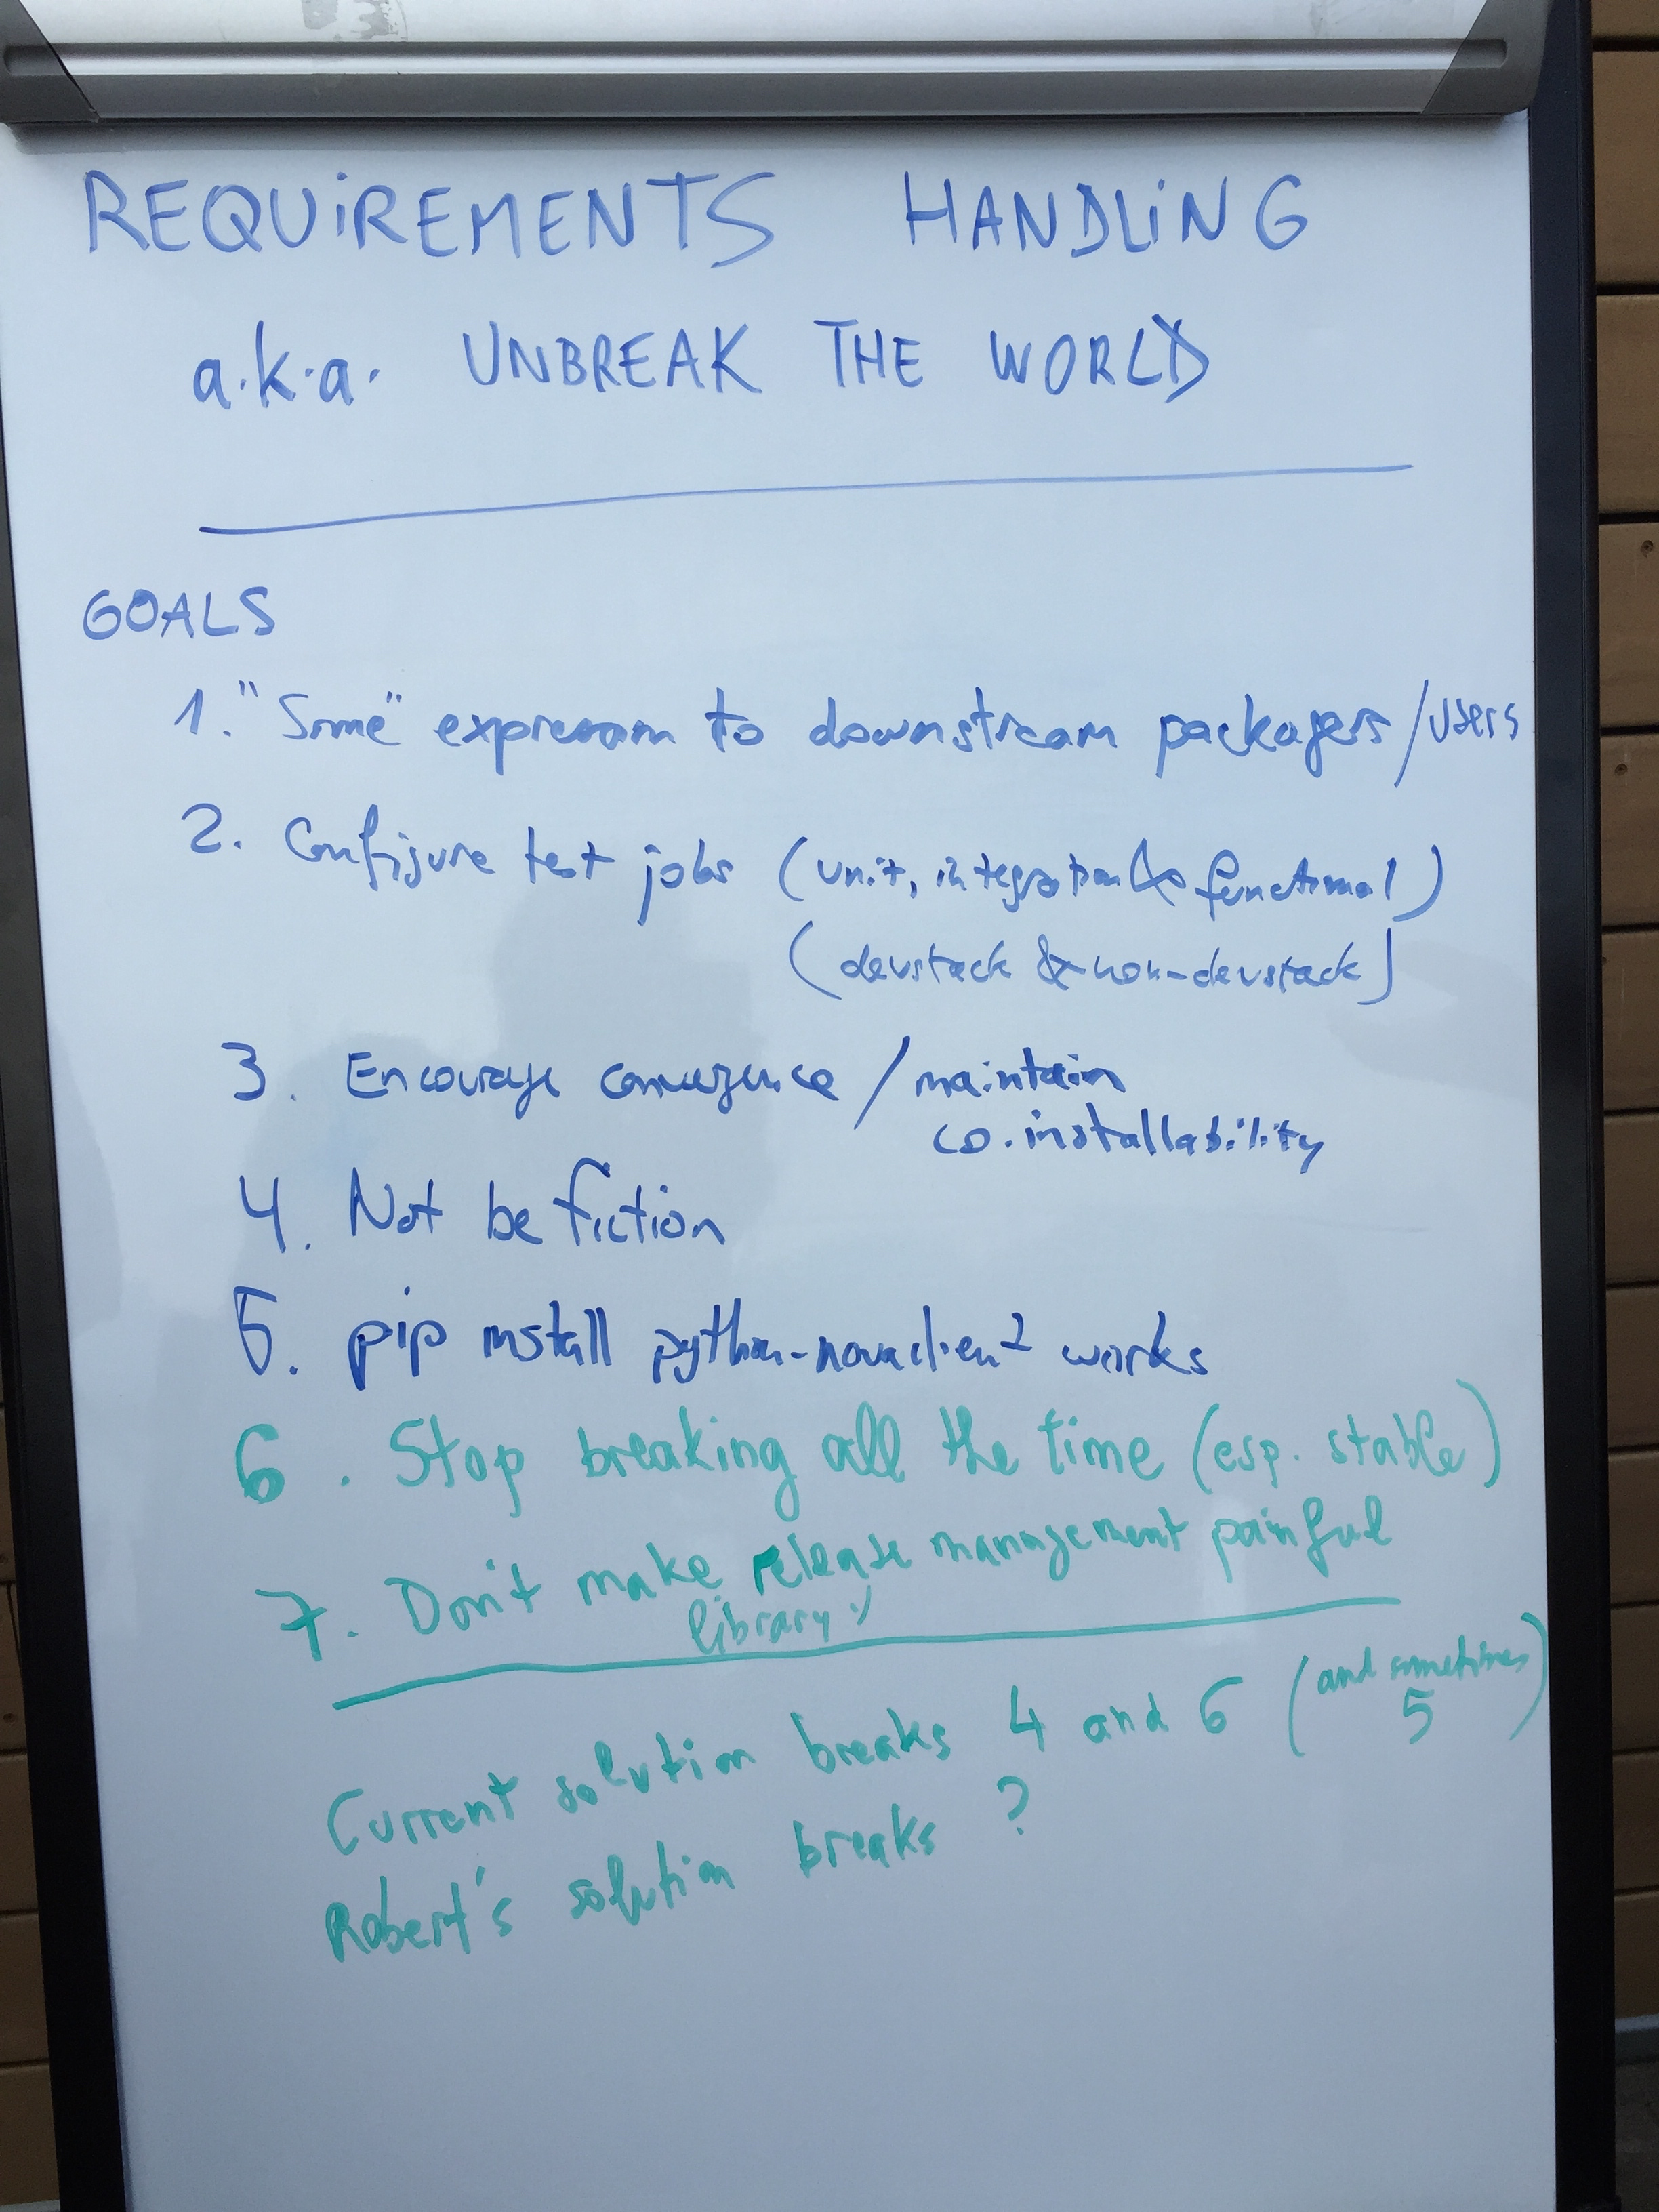 REQUIREMENTS HANDLING
a.k.a. UNBREAK THE WORLD
GOALS
1. "Some" expression to downstream packagers/users
2. Configure test jobs (unit, integration & functional)
(devstack & non-devstack)
3. Encourage convergence / maintain
co.installability
4. Not be fiction
5. pip install python-novaclient works
6. Stop breaking all the time (esp. stable)
7. Don't make release management painful
library :)
Current solution breaks 4 and 6 (and sometimes
5)
Robert's solution breaks ?